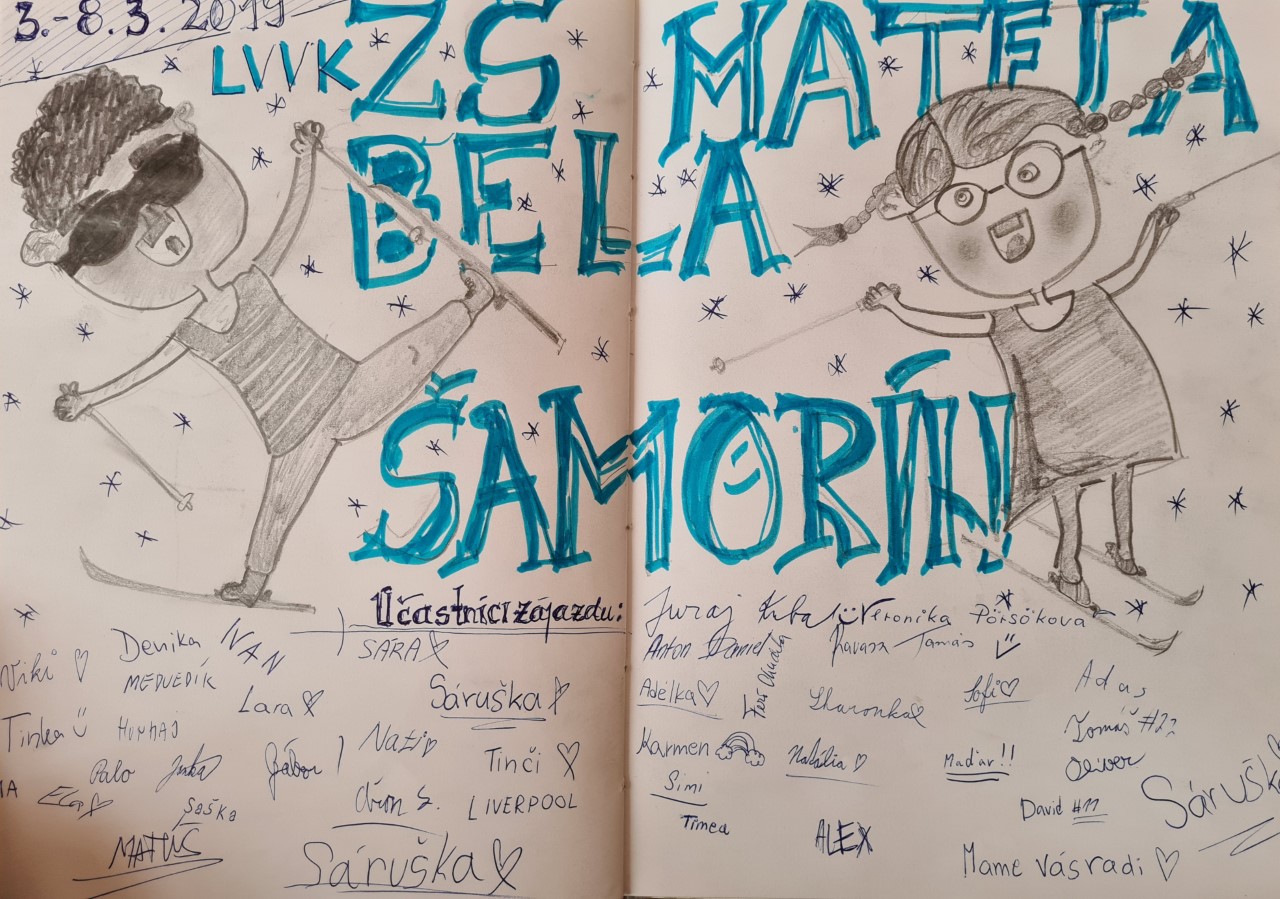 3.-8.3.2019
LVVK ZŠ MATEJA
BELA
ŠAMORÍN
Účastníci zájazdu:
Juraj Veronika Pörsöková
Anton Daniel Tamás
Denika IVAN SÁRA
Viki MEDVEDÍK
Lara Sáruška
Adélka Sharonka Sofi Adas
Tinka Tomáš #22
Nati Tinči
Karmen Natália Maďar!!
Palo Gábor Oliver
Ela Saška LIVERPOOL
Simi David #11
MATÚŠ Timea ALEX Sáruška
Sáruška
Mame Vásradi